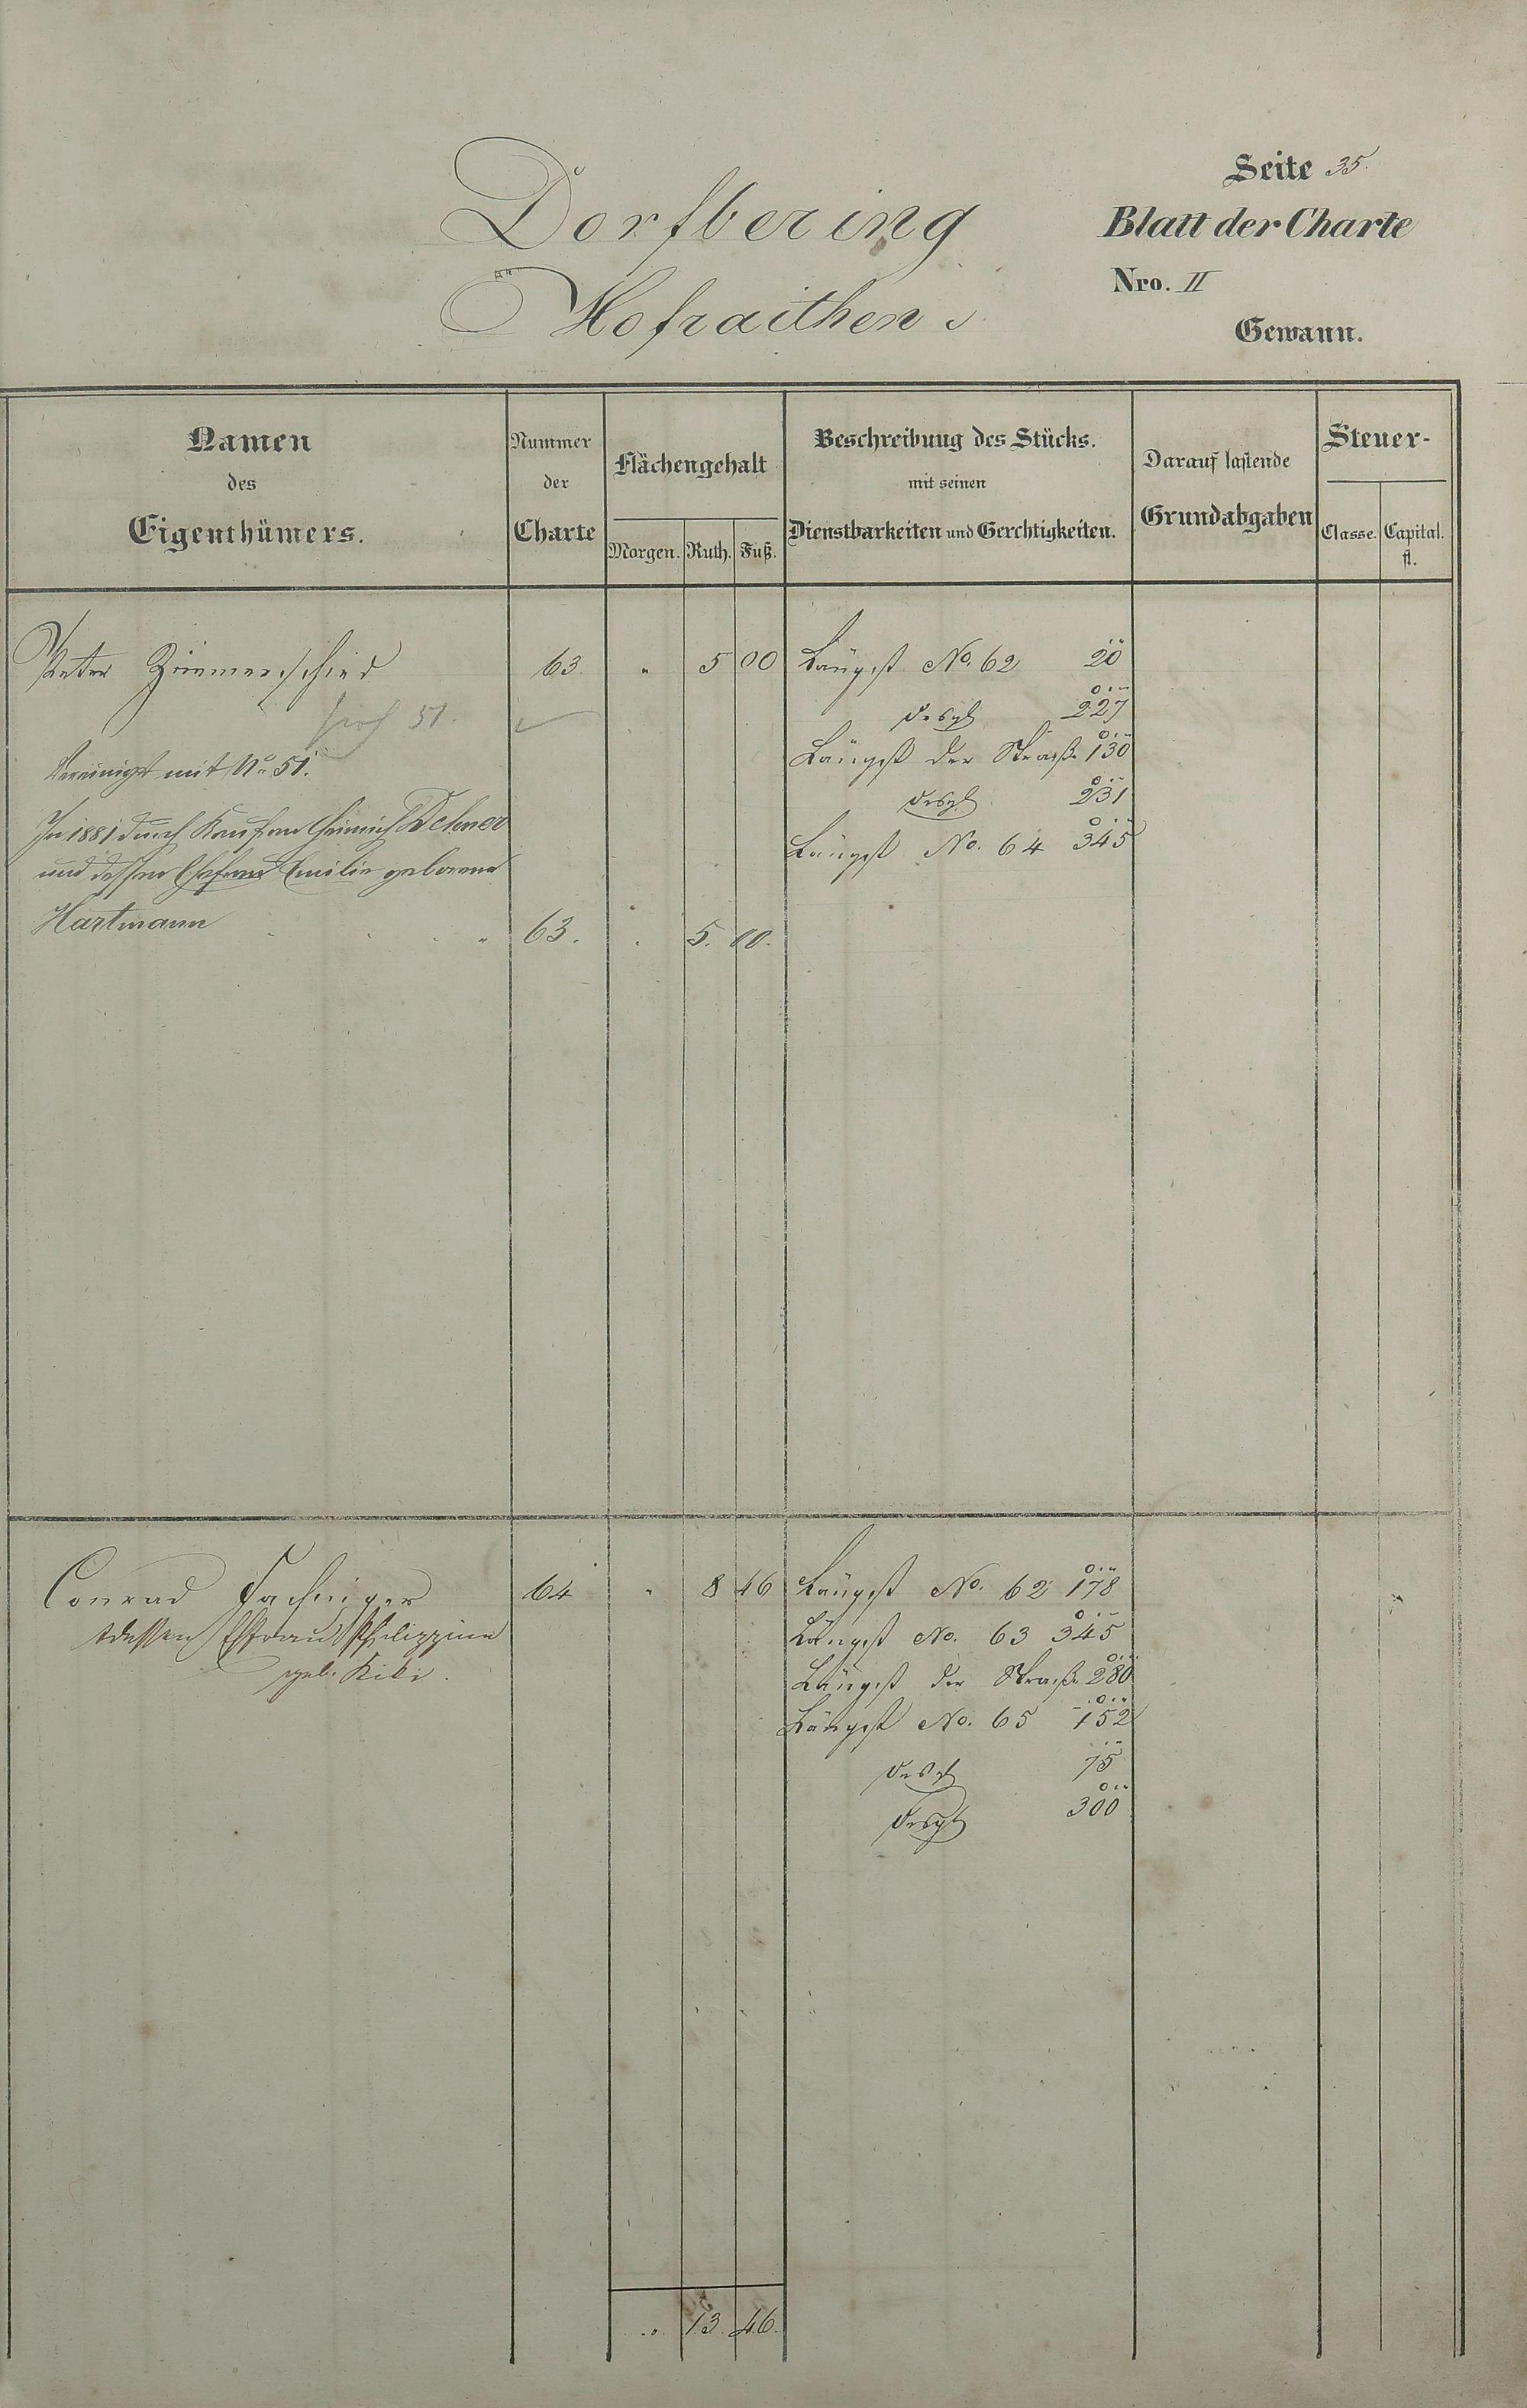 Seite 35.
Dorfbering
Blatt der Charte
Nro. II
Hofraithen
Gewann.
Namen des Eigenthümers.
Nummer der Charte
Flächengehalt
Morgen. Ruth. Fuß.
Beschreibung des Stücks. mit seinen Dienstbarkeiten und Gerchtigkeiten.
Darauf lastende Grundabgaben
Steuer-
Classe. Capital. fl.
Peter Zimmerschied 63. " 5 00 Längst No. 62 20
51. desgl 227
Längst der Straße 130
Vereinigt mit No 51.
desgl 231
In 1881 durch Kauf an Heinrich
Längst No. 64 345
und dessen Ehefrau Emilie geborene
Hartmann " 63. . 5. 00.
Conrad Fachinger 64 " 8 46 Längst No. 62 178
dessen Ehfrau Philippine
Längst No. 63 345
geb.
Längst der Straße 280
Längst No. 65 152
desgl 75
desgl 300
" 13. 46.